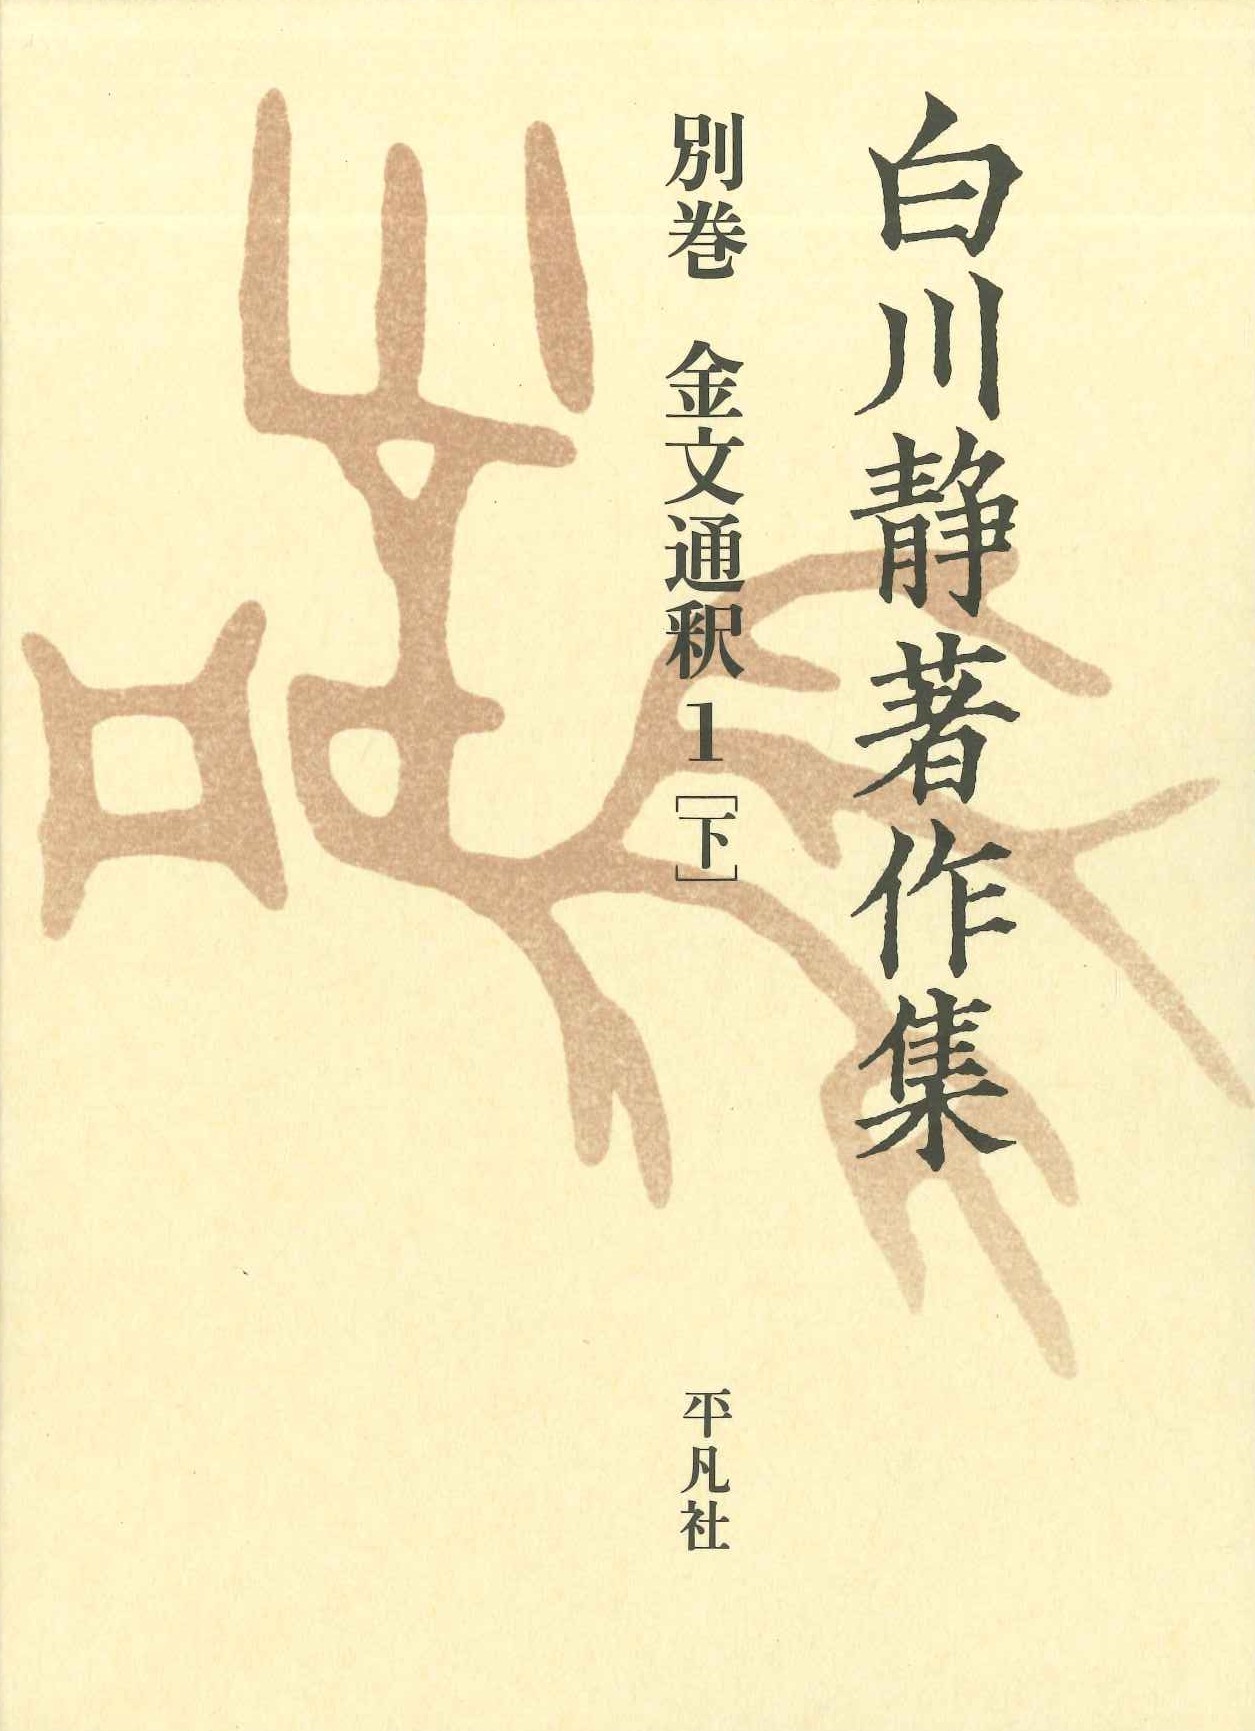 白川静著作集
別巻 金文通釈 1［下］
平凡社